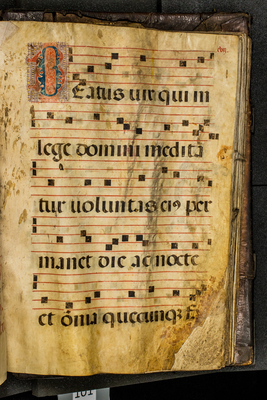 Beatus vir qui in
lege domini medita
tur voluntas eiꝰ per
manet die ac nocte
et o̅nia quecunqꝫ
101